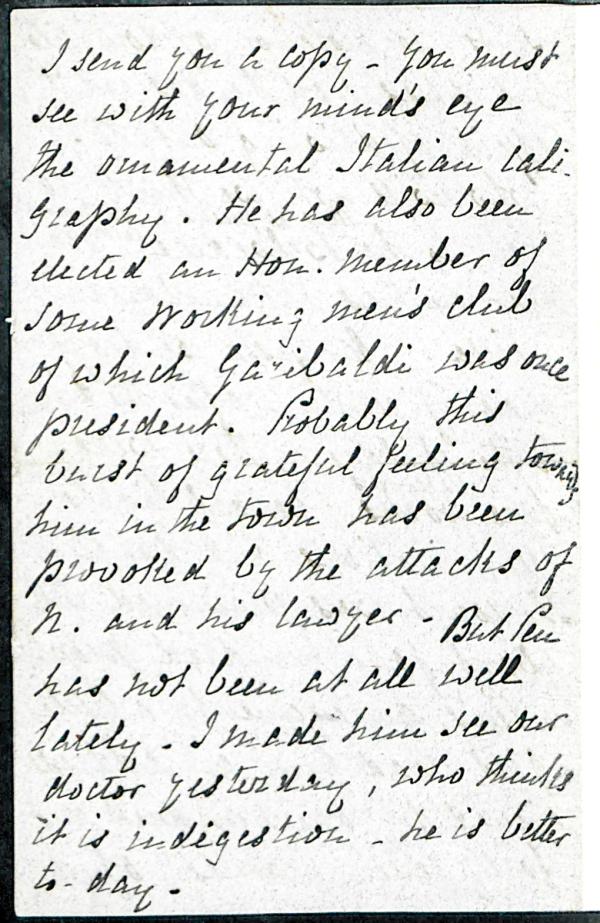 I send you a copy - You must
see with your mind's eye
the ornamental Italian cali-
graphy. He has also been
elected an Hon. member of
some working men's club
of which Garibaldi was once
president. Probably this
burst of grateful feeling towards
him in the town has been
provoked by the attacks of
N. and his lawyer - But Pen
has not been at all well
lately - I made him see our
doctor yesterday, who thinks
it is indigestion - he is better
to-day -